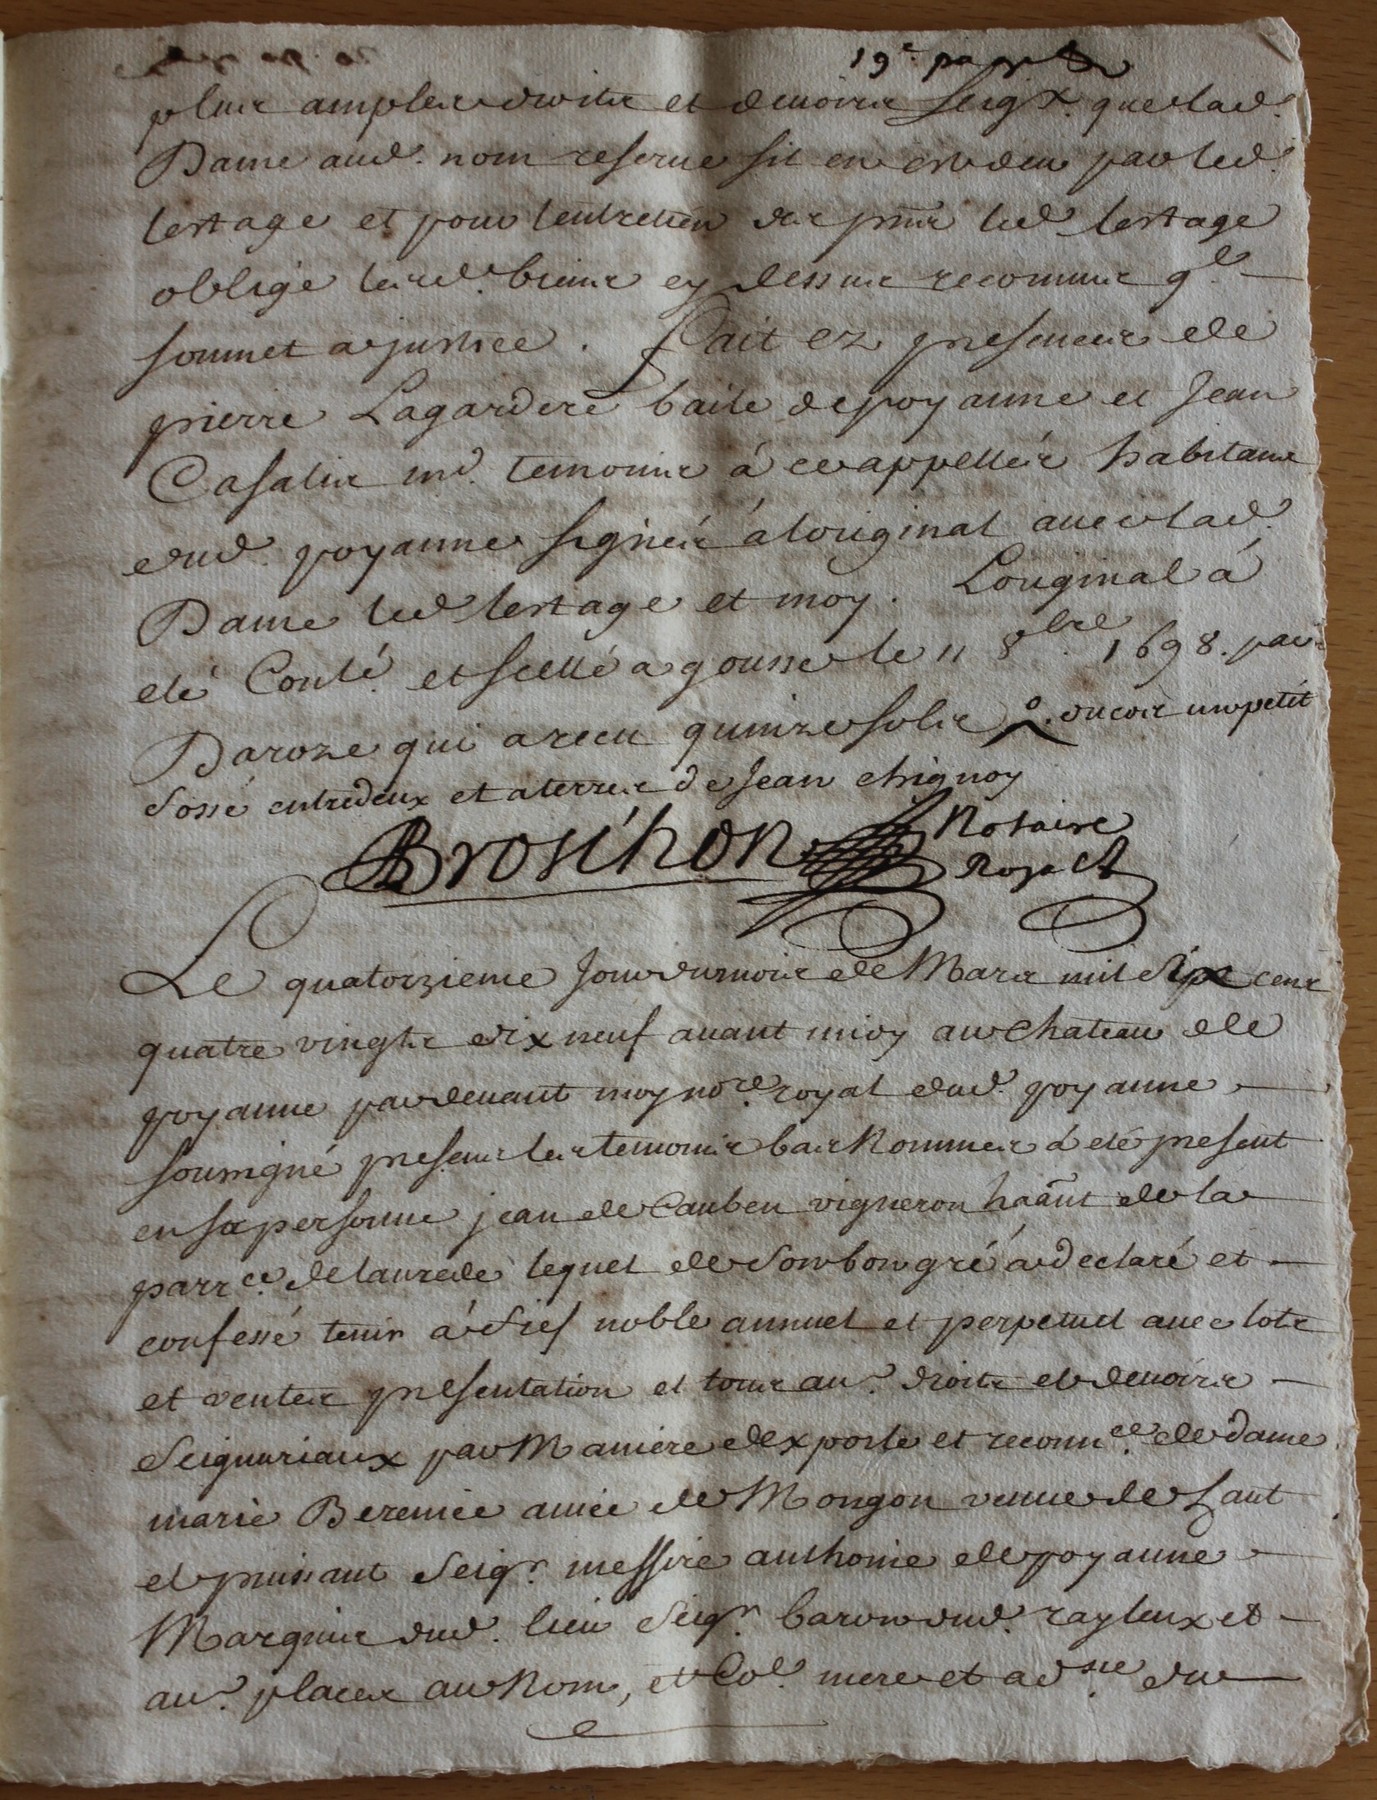 19e page
plus amples droits et devoirs Seigx. que lad.
Dame aud. nom reserve sil en est deu par led.
lestage et pour lentretien des pnts led lestage
obligé lesd. biens cy dessus reconnus ql
soumet a justice. fait ez presences de
pierre Lagardere baile de poyanne et Jean
Casalis md. temoins à ce appellés habitans
dud. poyanne signés á loriginal avec lad.
Dame led lestage et moy. Loriginal á
eté Conlé et scellé a gousse le 11 8bre 1698. par
Daroze qui a receu quinze sols o. encore un petit
fossé entredeux et a terres de Jean chignoy
Brosthon Notaire
Royal
Le quatorzieme Jour du mois de Mars mil Six cens
quatre vingts dix neuf avant midy au chateau de
poyanne pardevant moy nore. royal dud. poyanne
sousigné presens les temoins bas Nommés á eté present
en sa personne jean de Cauben vigneron haânt de la
parrce. de laurede lequel de son bon gré á declaré et
confessé tenir á fief noble annuel et perpetuel avec lots
et ventes presentation et tous aus. droits et devoirs
Seigneuriaux par Maniere dexporle et reconnce. de dame
marie Berenice avice de Mongon veuve de haut
et puissant Seigr. messire anthonie de poyanne
Marquis dud. lieu Seigr. baron dud. rayleux et
aus. places au Nom, et Col. mere et adsce du